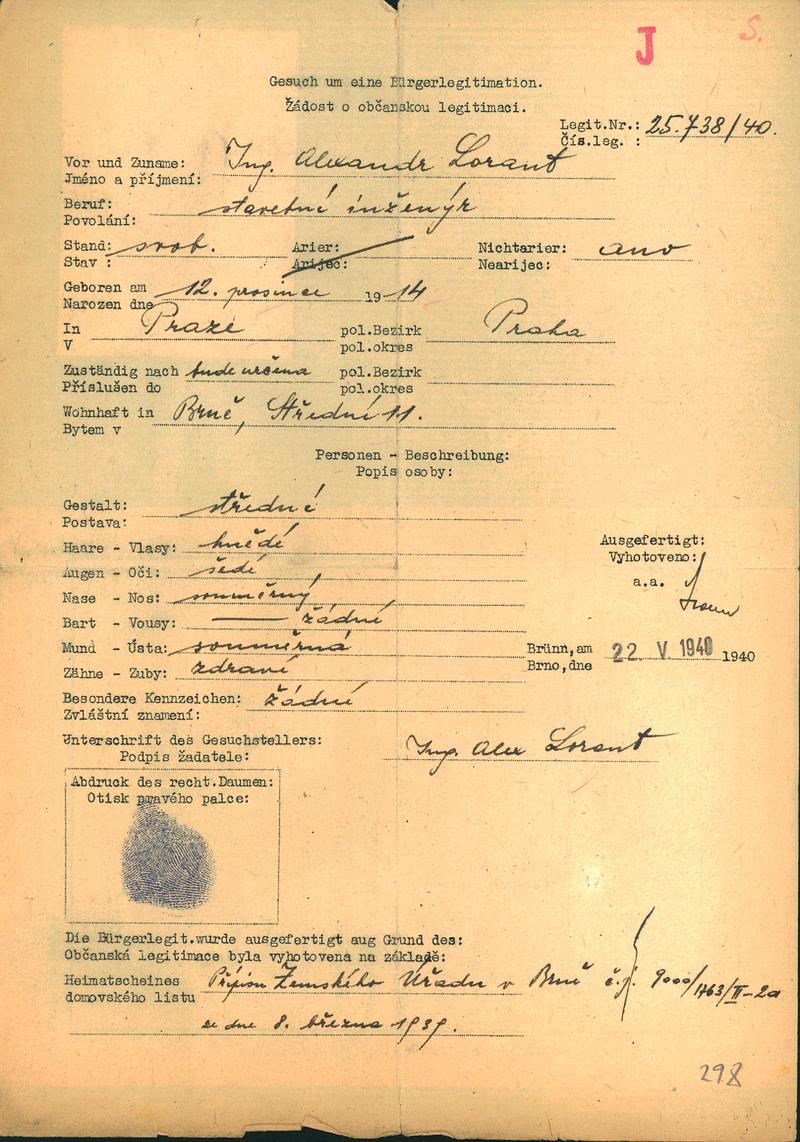 J
S.
Gesuch um eine Bürgerlegitimation.
Žádost o občanskou legitimaci.
Legit.Nr.: 25.738/40.
Čís.leg. :
Vor und Zuname: Ing. Alexandr Lorant
Jméno a příjmení:
Beruf: stavební inženýr
Povolání:
Stand: svob. Arier: Nichtarier: ano
Stav : Arijec: Nearijec:
Geboren am 12. prosince 1914
Narozen dne
In Praze pol.Bezirk Praha
V pol.okres
Zuständig nach bude určena pol.Bezirk
Příslušen do pol.okres
Wohnhaft in Brně, Střední 11.
Bytem v
Personen - Beschreibung:
Popis osoby:
Gestalt: střední
Postava:
Haare - Vlasy: hnědé
Augen - Oči: šedé
Nase - Nos: souměrný
Bart - Vousy: žádné
Mund - Ústa: souměrná
Zähne - Zuby: zdravé
Besondere Kennzeichen: žádné
Zvláštní znamení:
Ausgefertigt:
Vyhotoveno:
a.a.
Brünn,am 22 V 1940 1940
Brno,dne
Unterschrift des Gesuchstellers: Ing. Alex Lorant
Podpis žadatele:
Abdruck des recht.Daumen:
Otisk pravého palce:
Die Bürgerlegit.wurde ausgefertigt aug Grund des:
Občanská legitimace byla vyhotovena na základě:
Heimatscheines Přípisu Zemského Úřadu v Brně č.j. 9000/1763/II-2a
domovského listu
ze dne 8. března 1939.
298